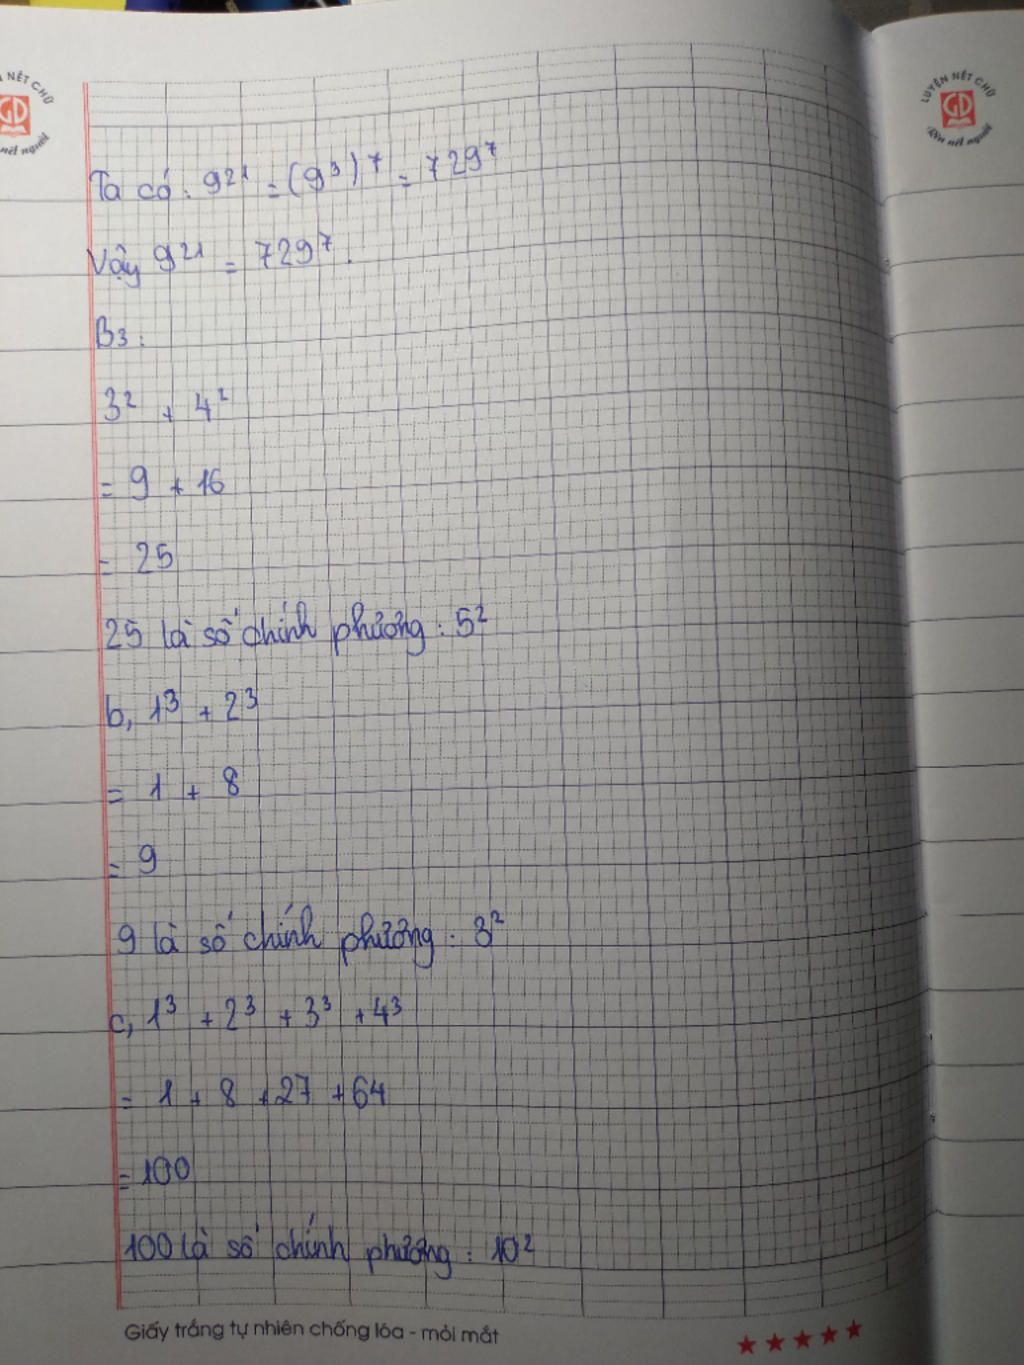 LUYỆN NÉT CHỮ
GD
Rèn nết người
Ta có: 9²¹ = (9³)⁷ = 729⁷
Vậy 9²¹ = 729⁷.
B3:
3² + 4²
= 9 + 16
= 25
25 là số chính phương: 5²
b, 1³ + 2³
= 1 + 8
= 9
9 là số chính phương: 3²
c, 1³ + 2³ + 3³ + 4³
= 1 + 8 + 27 + 64
= 100
100 là số chính phương: 10²
Giấy trắng tự nhiên chống lóa - mỏi mắt